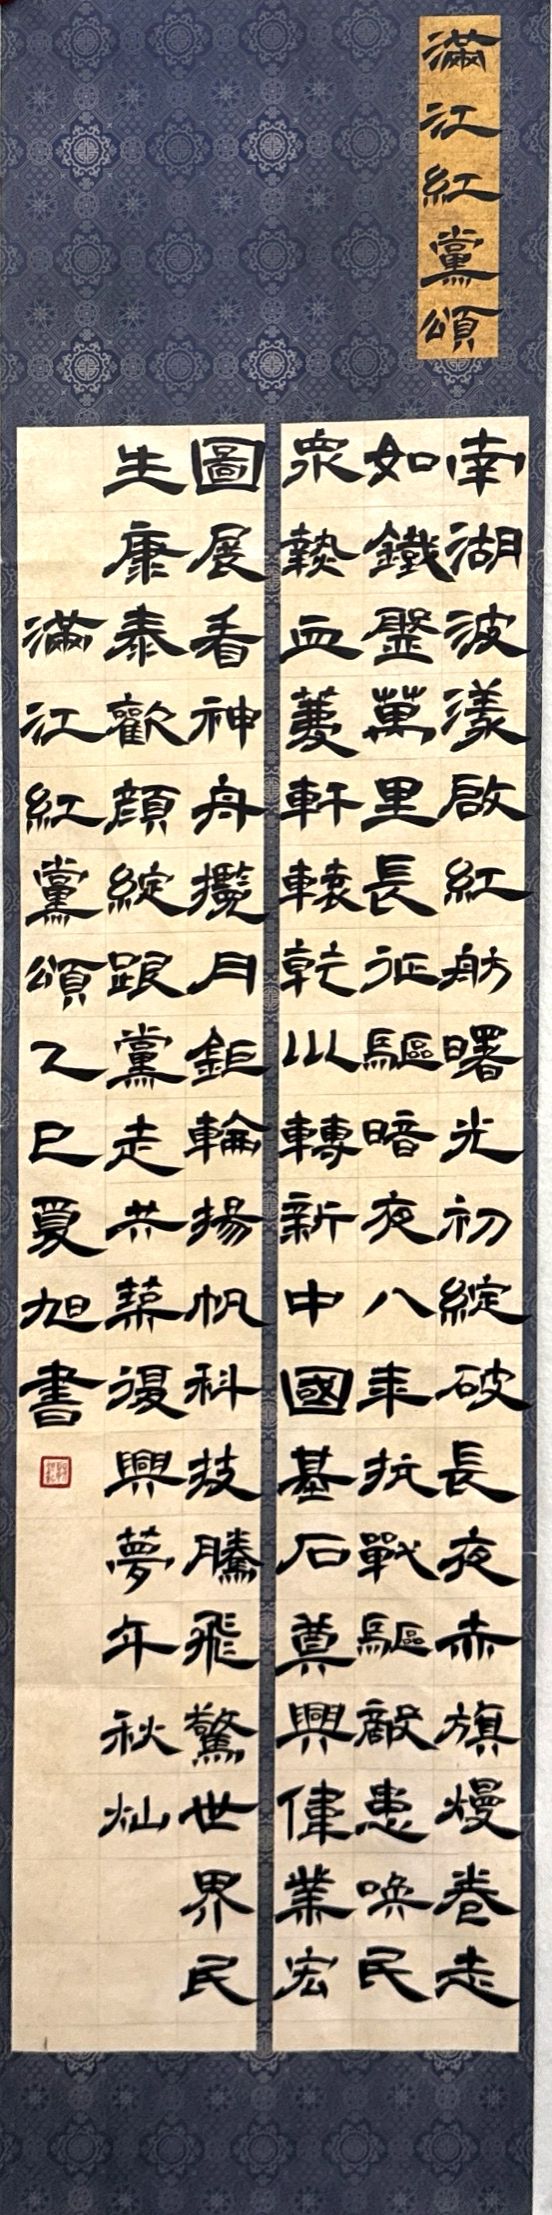 滿江紅黨頌
南湖波漾啟紅舫曙光初綻破長夜赤旗熳卷走
如鐵壁萬里長征驅暗夜八年抗戰驅敵患喚民
衆熱血薆軒轅乾以轉新中國基石奠興偉業宏
圖展看神舟攬月鉅輪揚帆科技騰飛驚世界民
生康泰歡顔綻跟黨走共築復興夢年秋灿
滿江紅黨頌乙巳夏旭書